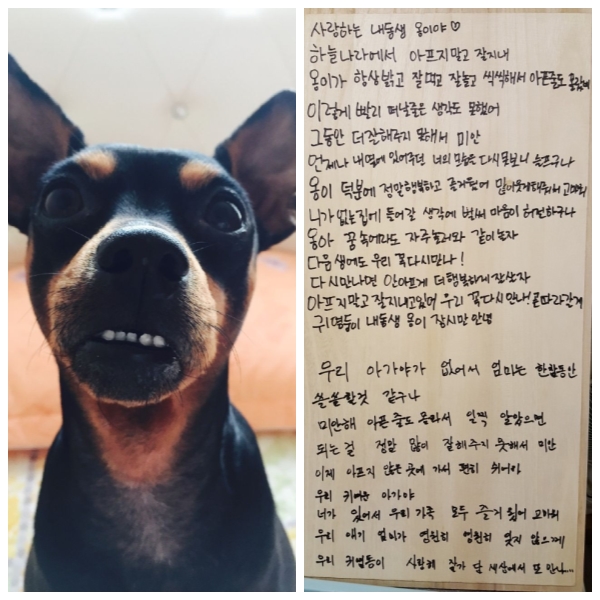 사랑하는 내동생 옹이야♡
하늘나라에서 아프지말고 잘지내
옹이가 항상밝고 잘먹고 잘놀고 씩씩해서 아픈줄도 몰랐네
이렇게 빨리 떠날줄은 생각도 못했어
그동안 더잘해주지 못해서 미안
언제나 내옆에 있어주던 너의 모습을 다시못보니 슬프구나
옹이 덕분에 정말행복하고 즐거웠어 고마워
니가 없는집에 들어갈 생각에 벌써 마음이 허전하구나
옹아 꿈속에라도 자주놀러와 같이놀자
다음생에도 우리 꼭다시만나!
다시만나면 안아프게 더행복하게 잘살자
아프지말고 잘지내고있어 우리 꼭다시만나! 곧따라간게
귀염둥이 내동생 옹이 잠시만 안녕
우리 아가야가 없어서 엄마는 한참동안
쓸쓸할것 같구나
미안해 아픈줄도 몰라서 일찍 알았으면
되는걸 정말 많이 잘해주지 못해서 미안
이제 아프지 않은 곳에 가서 편히 쉬어라
우리 귀여운 아가야
너가 있어서 우리가족 모두 즐거웠어 고마워
우리 애기 엄마가 영원히 영원히 잊지 않으께
우리 귀염둥이 사랑해 잘가 담 세상에서 또 만나...